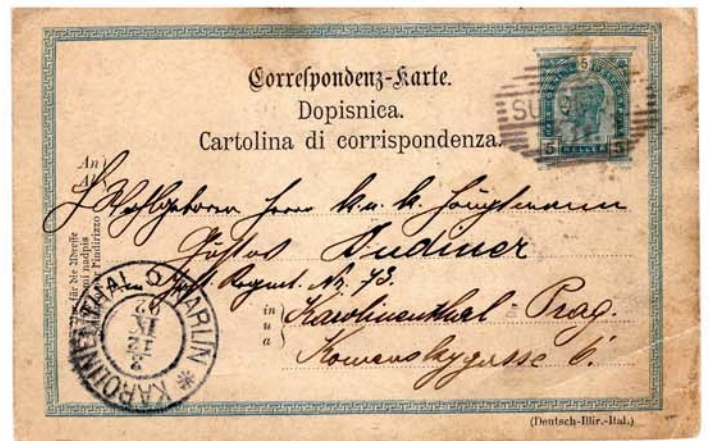 Correspondenz-Karte.
Dopisnica.
Cartolina di corrispondenza.
5
5 HELLER 5
An
Wohlgeboren Herrn k. u. k. Hauptmann
Gustav Dudiner
im Inft. Regmt. Nr. 73.
in
u
a
Karolinenthal-Prag.
Komenskygasse 6.
KAROLINENTHAL KARLIN
(Deutsch-Illir.-Ital.)